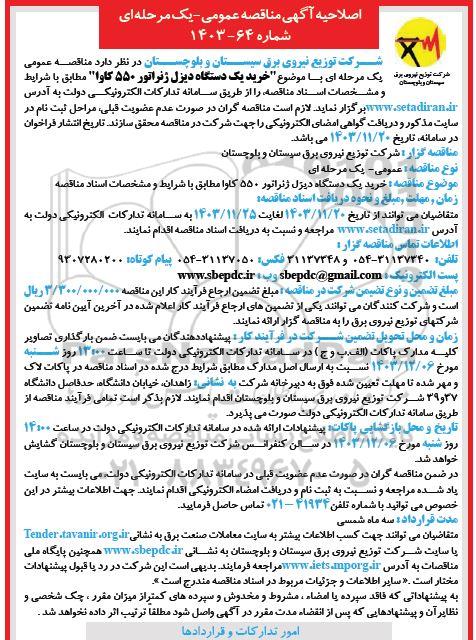 اصلاحیه آگهی مناقصه عمومی-یک مرحله‌ای
شماره ۶۴-۱۴۰۳
شرکت توزیع نیروی برق
سیستان و بلوچستان
شرکت توزیع نیروی برق سیستان و بلوچستان در نظر دارد مناقصه عمومی
یک مرحله ای با موضوع "خرید یک دستگاه دیزل ژنراتور ۵۵۰ کاوا" مطابق با شرایط
و مشخصات اسناد مناقصه را از طریق سامانه تدارکات الکترونیکی دولت به آدرس
www.setadiran.ir برگزار نماید. لازم است مناقصه گران در صورت عدم عضویت قبلی، مراحل ثبت نام در
سایت مذکور و دریافت گواهی امضای الکترونیکی را جهت شرکت در مناقصه محقق سازند. تاریخ انتشار فراخوان
در سامانه، تاریخ ۱۴۰۳/۱۱/۲۰ می باشد.
مناقصه گزار: شرکت توزیع نیروی برق سیستان و بلوچستان
نوع مناقصه: عمومی- یک مرحله ای
موضوع مناقصه: خرید یک دستگاه دیزل ژنراتور ۵۵۰ کاوا مطابق با شرایط و مشخصات اسناد مناقصه
زمان، مهلت، مبلغ و نحوه دریافت اسناد مناقصه:
متقاضیان می توانند از تاریخ ۱۴۰۳/۱۱/۲۰ لغایت ۱۴۰۳/۱۱/۲۵ به سامانه تدارکات الکترونیکی دولت به
آدرس www.setadiran.ir مراجعه و نسبت به دریافت اسناد مناقصه اقدام نمایند.
اطلاعات تماس مناقصه گزار:
تلفن: ۳۱۱۳۷۳۴۰-۰۵۴ و ۳۱۱۳۷۳۴۸ فکس: ۳۱۱۳۷۰۵۰-۰۵۴ پیام کوتاه: ۹۳۰۷۲۸۰۲۰۰
پست الکترونیک: sbepdc@gmail.com وب: www.sbepdc.ir
مبلغ تضمین و نوع تضمین شرکت در مناقصه: مبلغ تضمین ارجاع فرآیند کار این مناقصه ۳/۳۰۰/۰۰۰/۰۰۰ ریال
است و شرکت کنندگان می توانند یکی از تضمین های ارجاع فرآیند کار اعلام شده در آخرین آیین نامه تضمین
شرکتهای توزیع نیروی برق را به مناقصه گزار ارائه نمایند.
زمان و محل تحویل تضمین شرکت در فرآیند کار: پیشنهاددهندگان می بایست ضمن بارگذاری تصاویر
کلیه مدارک پاکات (الف، ب و ج) در سامانه تدارکات الکترونیکی دولت تا ساعت ۱۳:۰۰ روز شنبه
مورخ ۱۴۰۳/۱۲/۰۶ نسبت به ارسال اصل مدارک مطابق شرایط درج شده در اسناد مناقصه در پاکات لاک
و مهر شده تا مهلت تعیین شده فوق به دبیرخانه شرکت به نشانی: زاهدان، خیابان دانشگاه، حدفاصل دانشگاه
۳۷و۳۹ شرکت توزیع نیروی برق سیستان و بلوچستان اقدام نمایند. لازم بذکر است تمامی فرآیند مناقصه از
طریق سامانه تدارکات الکترونیکی دولت صورت می پذیرد.
تاریخ و محل بازگشایی پاکات: پیشنهادات ارائه شده در سامانه تدارکات الکترونیکی دولت در ساعت ۱۴:۰۰
روز شنبه مورخ ۱۴۰۳/۱۲/۰۶ در سالن کنفرانس شرکت توزیع نیروی برق سیستان و بلوچستان گشایش
خواهد شد.
در ضمن مناقصه گران در صورت عدم عضویت قبلی در سامانه تدارکات الکترونیکی دولت می بایست به سایت
یاد شده مراجعه و نسبت به ثبت نام و دریافت امضاء الکترونیکی اقدام نمایند. جهت اطلاعات بیشتر در این
خصوص می توانید با شماره تلفن ۴۱۹۳۴-۰۲۱ تماس حاصل فرمایید.
مدت قرارداد: سه ماه شمسی
متقاضیان می توانند جهت کسب اطلاعات بیشتر به سایت معاملات صنعت برق به نشانی Tender.tavanir.org.ir
یا سایت شرکت توزیع نیروی برق سیستان و بلوچستان به نشانی www.sbepdc.ir همچنین پایگاه ملی
مناقصات به آدرس www.iets.mporg.ir مراجعه فرمایند. بدیهی است این شرکت در رد یا قبول پیشنهادات
مختار است. «سایر اطلاعات و جزئیات مربوط در اسناد مناقصه مندرج است».
به پیشنهاداتی که فاقد سپرده یا امضاء، مشروط و مخدوش و سپرده های کمتر از میزان مقرر، چک شخصی و
نظایر آن و پیشنهادهایی که پس از انقضاء مدت مقرر در آگهی واصل شود مطلقاً ترتیب اثر داده نخواهد شد.
امور تدارکات و قراردادها